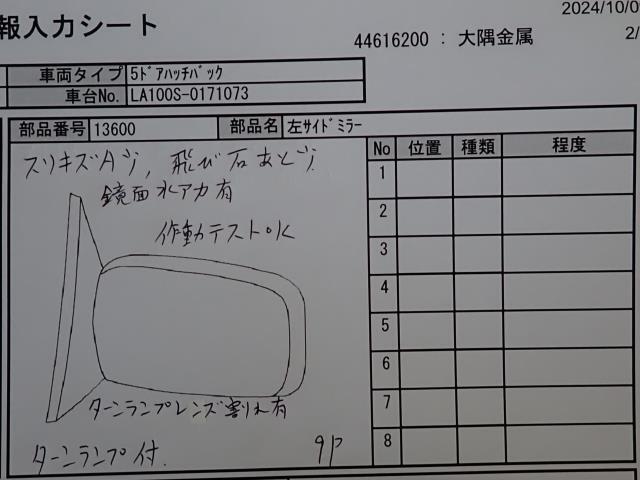 2024/10/0
報入力シート
44616200 : 大隅金属
2/
車両タイプ 5ﾄﾞｱﾊｯﾁﾊﾞｯｸ
車台No. LA100S-0171073
部品番号 13600 部品名 左ｻｲﾄﾞﾐﾗｰ
No 位置 種類 程度
1
2
3
4
5
6
7
8
スリキズA少, 飛び石あと少
鏡面水アカ有
作動テストOK
ターンランプレンズ割れ有
ターンランプ付.
9P